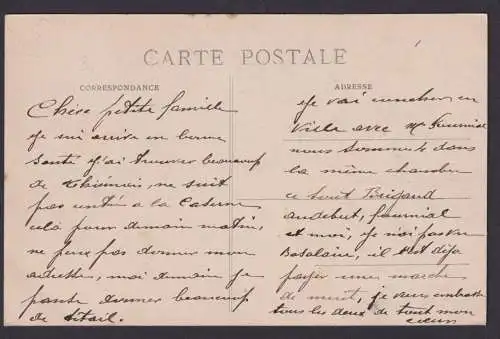 CARTE POSTALE
CORRESPONDANCE
Chère petite famille
Je sui arrivé en bonne
santé j'ai trouver beaucoup
de ne suit
pas entré a la Caserne
cela pour demain matin,
ne peux pas donner mon
adresse, mai demain je
donner beaucoup
de détail.
ADRESSE
Je vai coucher en
Ville avec Mr Fournial
nous sommes dans
la même chambre
ce soir Brigand
audebert, fournial
et moi, je n'ai pas vu
il est déja
une marche
de nuit, je vous embrasse
tous les deux de tout mon
cœur